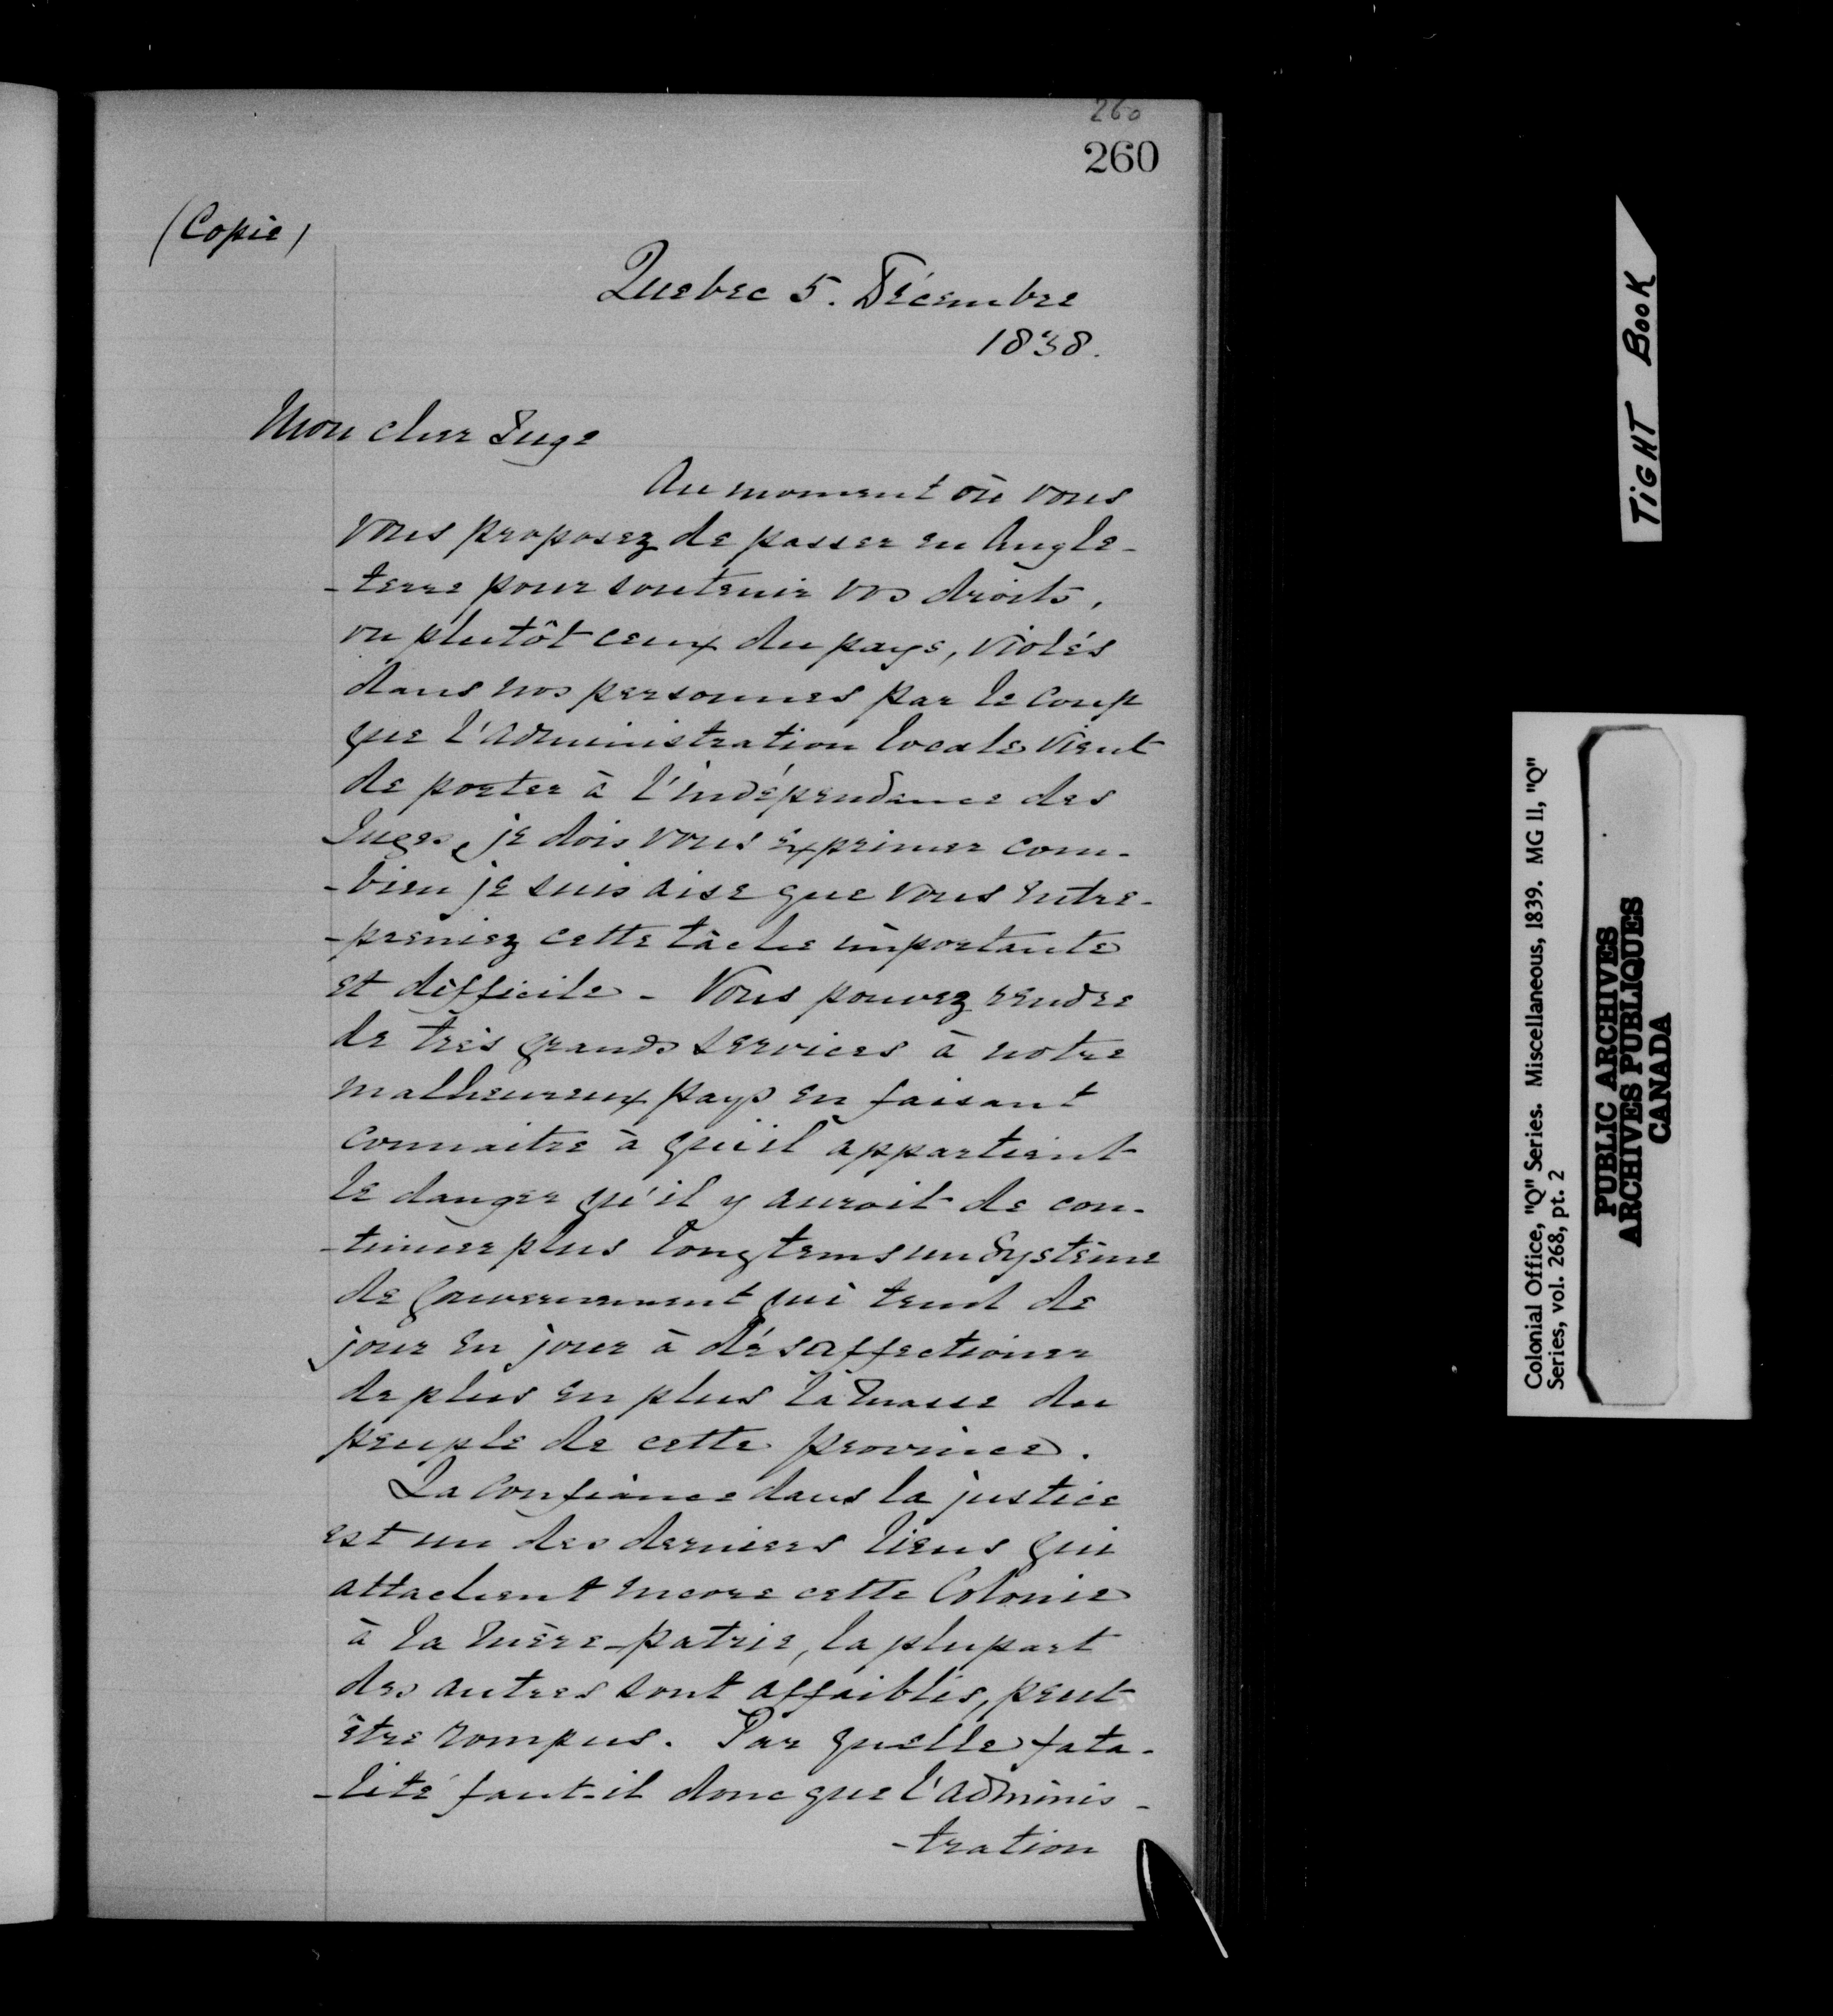 260
260
(Copie)
Quebec 5. Décembre
1838.
Mon cher Juge
Au moment où vous
vous proposez de passer en Angle-
-terre pour soutenir vos droits,
ou plutôt ceux du pays, violés
dans nos personnes par le coup
que l'administration locale vient
de porter à l'indépendance des
Juges, je dois vous exprimer com-
-bien je suis aise que vous entre-
-preniez cette tâche importante
et difficile - Vous pouvez rendre
de très grands services à notre
malheureux pays en faisant
connaitre à qu'il appartient
le danger qu'il y auroit de con-
-tinuer plus longtems un Système
de Gouvernement qui tend de
jour en jour à désaffectioner
de plus en plus la masse du
peuple de cette province.
La confiance dans la justice
est un des derniers liens qui
attachent encore cette Colonie
à la mère-patrie, la plupart
des autres sont affaiblis, peut
être rompus. Par quelle fata-
-lité faut-il donc que l'adminis-
-tration
TIGHT BOOK
Colonial Office, "Q" Series. Miscellaneous, 1839. MG 11, "Q"
Series, vol. 268, pt. 2
PUBLIC ARCHIVES
ARCHIVES PUBLIQUES
CANADA